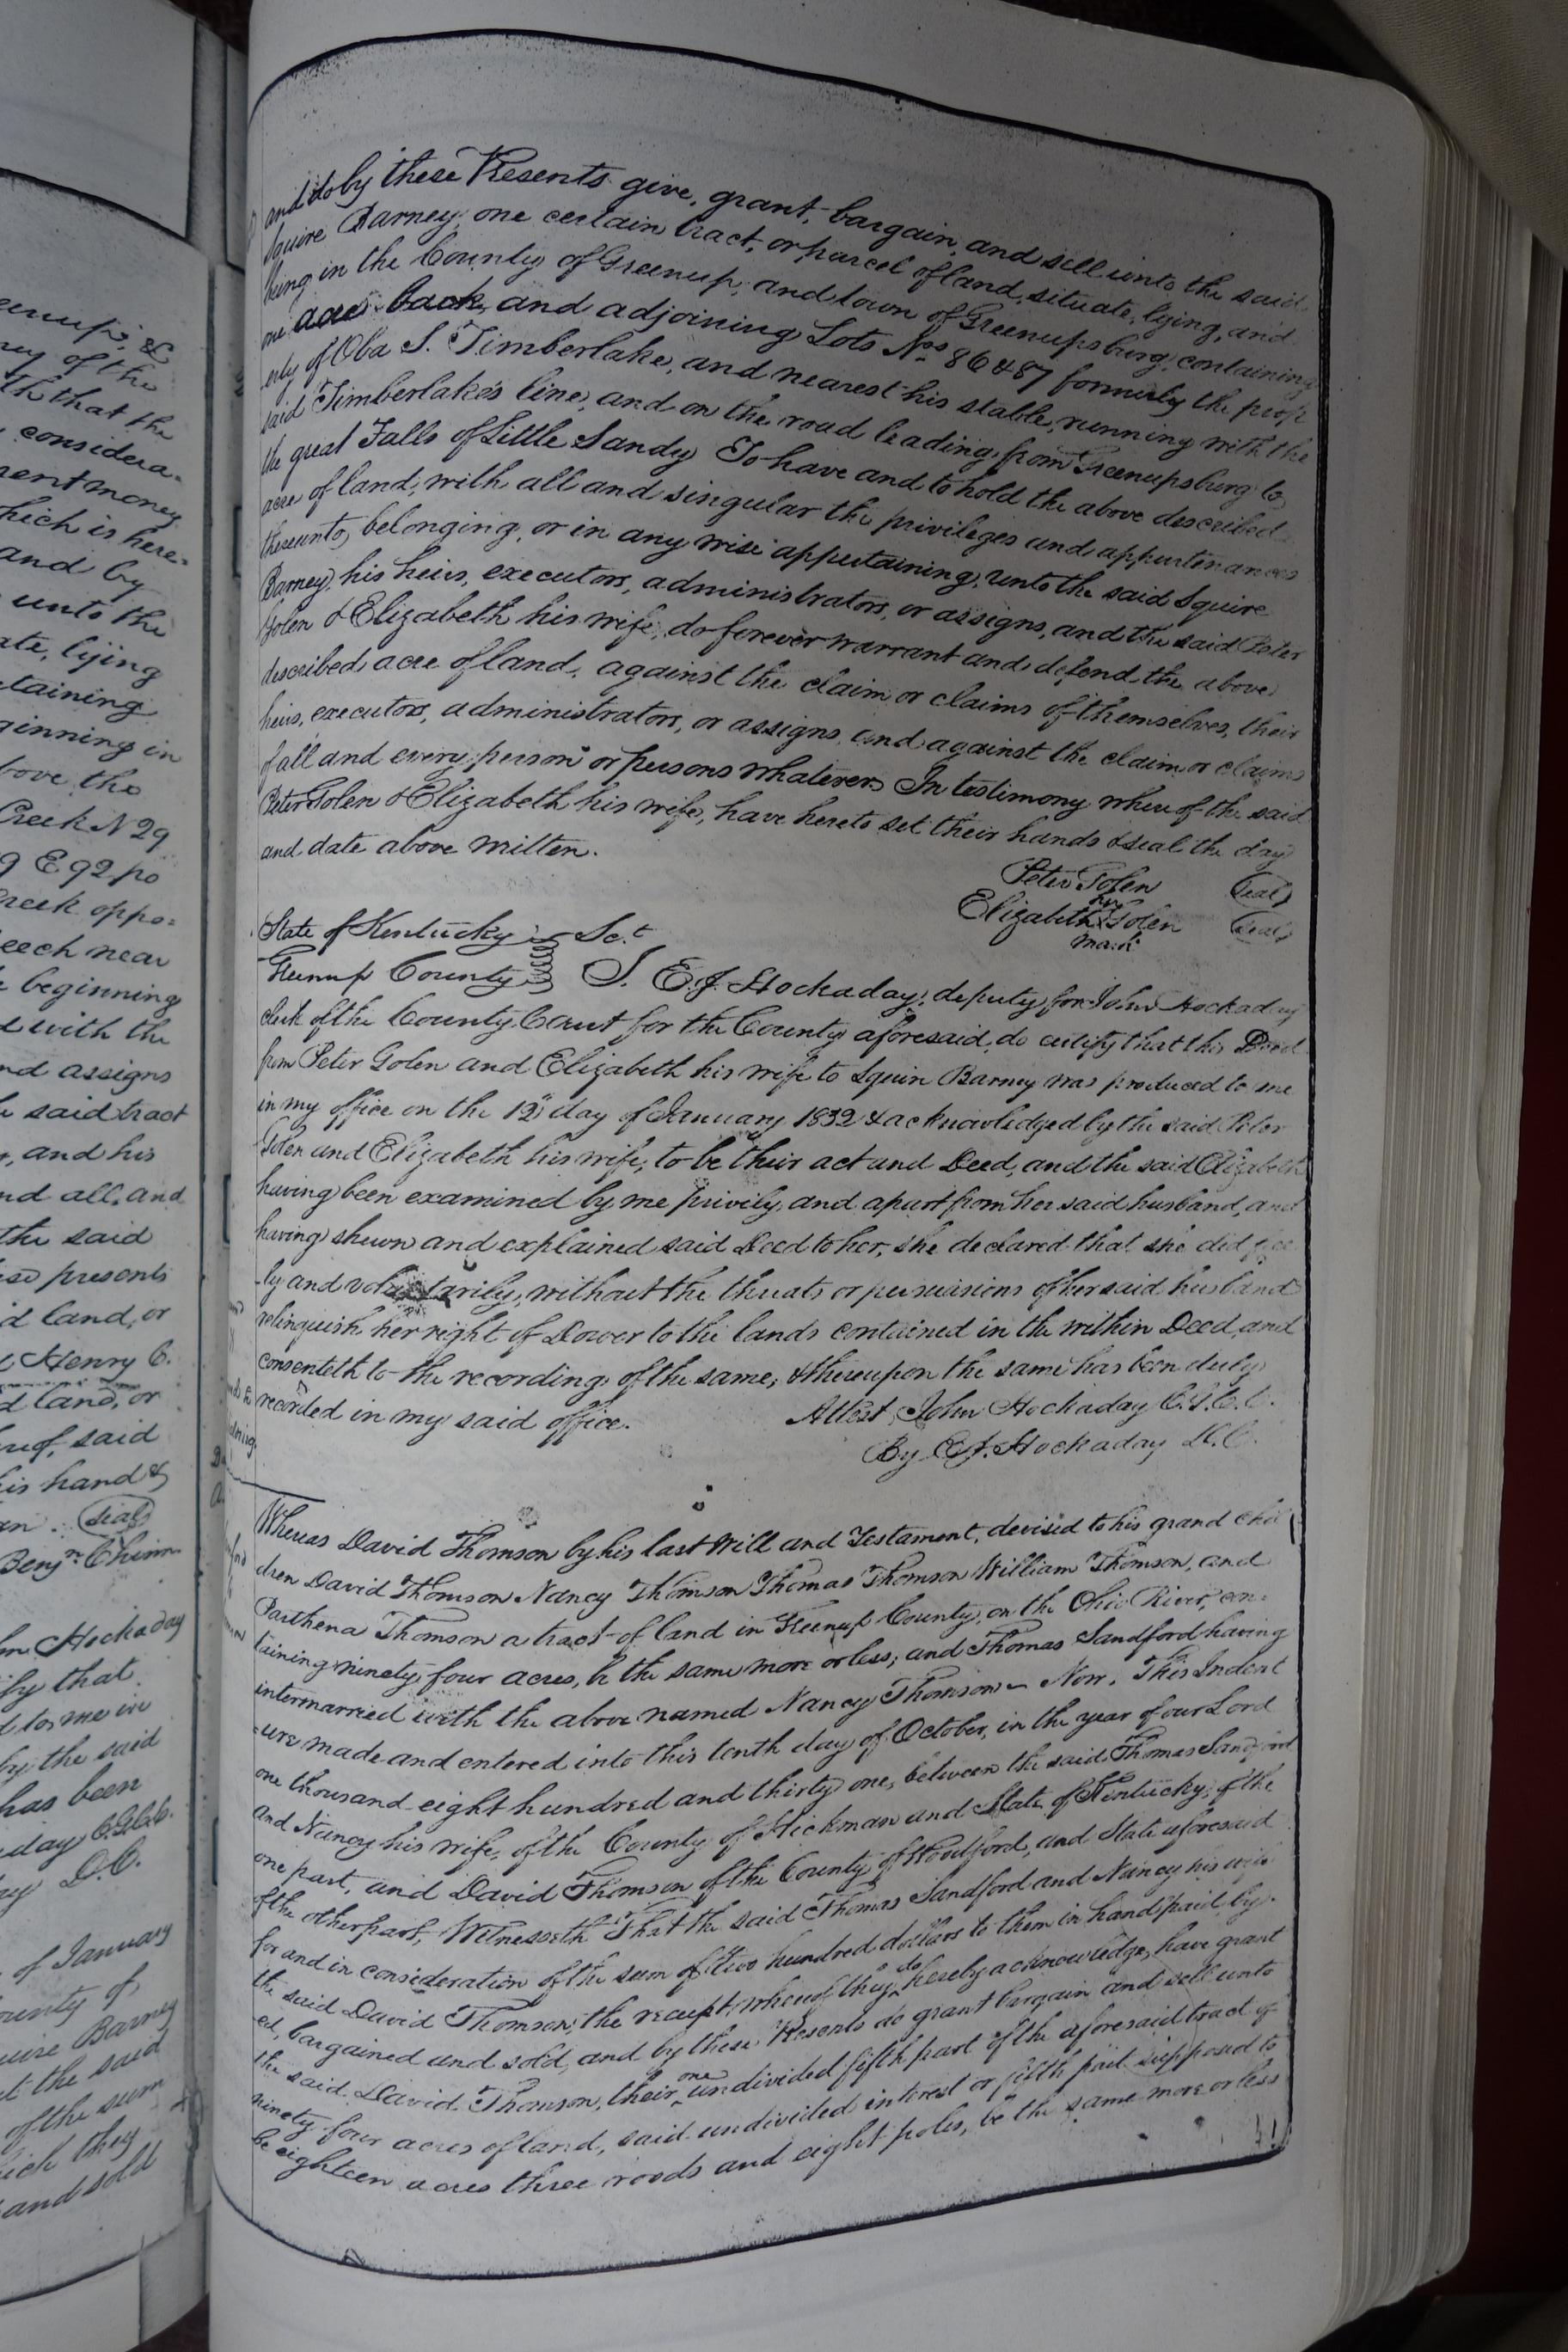 eenup, &
ney of the
th that the
considera-
rent money
hich is here-
and by
unto the
ate, lying
taining
ginning in
bove the
Creek N 29
E 92 po
creek oppo-
eech near
beginning
with the
nd assigns
said tract
, and his
nd all, and
the said
ese presents
d land, or
Henry C.
d land, or
said
his hand &
seal
Benjn. Chinn
Hockaday
ify that
to me in
by the said
has been
day C.G.C.C.
D.C.
of January
ounty of
uire Barney
t the said
of the sum
ich they
and sold
and do by these Presents give, grant, bargain, and sell unto the said
Squire Barney, one certain tract, or parcel of land, situate, lying, and
being in the County of Greenup, and town of Greenupsburg, containing
one acre back, and adjoining Lots Nos 86 & 87 formerly the prop
erty of Oba S. Timberlake, and nearest his stable, running with the
said Timberlake's line, and on the road leading from Greenupsburg to
the great Falls of Little Sandy To have and to hold the above described
acre of land, with all and singular the privileges and appurtenances
thereunto, belonging, or in any wise appertaining, unto the said Squire
Barney, his heirs, executors, administrators, or assigns, and the said Peter
Golen & Elizabeth his wife, do forever warrant and defend the above
described acre of land, against the claim or claims of themselves, their
heirs, executors, administrators, or assigns, and against the claim or claims
of all and every person or persons whatever In testimony whereof the said
Peter Golen & Elizabeth his wife, have hereto set their hands & seal the day
and date above written.
Peter Golen seal
her
Elizabeth X Golen seal
mark
State of Kentucky Sct
Greenup County I. E.J. Hockaday, deputy for John Hockaday
clerk of the County Court for the County aforesaid, do certify that this Deed
from Peter Golen and Elizabeth his wife to Squire Barney was produced to me
in my office on the 12th day of January 1832 & acknowledged by the said Peter
Golen and Elizabeth his wife, to be their act and Deed, and the said Elizabeth
having been examined by me privily, and apart from her said husband, and
having shewn and explained said Deed to her, she declared that she did free
-ly and voluntarily, without the threats or persuasions of her said husband
relinquish her right of Dower to the lands contained in the within Deed, and
consenteth to the recording of the same, & thereupon the same has been duly
recorded in my said office. Attest John Hockaday C.G.C.C.
By E.J. Hockaday D.C.
Whereas David Thomson by his last Will and Testament, devised to his grand chil
dren David Thomson Nancy Thomson Thomas Thomson William Thomson, and
Parthena Thomson a tract of land in Greenup County, on the Ohio River, con-
taining ninety four acres, be the same more or less; and Thomas Sandford having
intermarried with the above named Nancy Thomson - Now, This Indent
-ure made and entered into this tenth day of October, in the year of our Lord
one thousand eight hundred and thirty one, between the said Thomas Sandford
and Nancy his wife, of the County of Hickman and State of Kentucky, of the
one part, and David Thomson of the County of Woodford, and State aforesaid
of the other part, Witnesseth That the said Thomas Sandford and Nancy his wife
for and in consideration of the sum of two hundred dollars to them in hand paid by
the said David Thomson, the receipt whereof they do hereby acknowledge, have grant
ed, bargained and sold, and by these Presents do grant bargain and sell unto
the said David Thomson, their one undivided fifth part of the aforesaid tract of
ninety four acres of land, said undivided interest or fifth part supposed to
be eighteen acres three roods and eight poles, be the same more or less